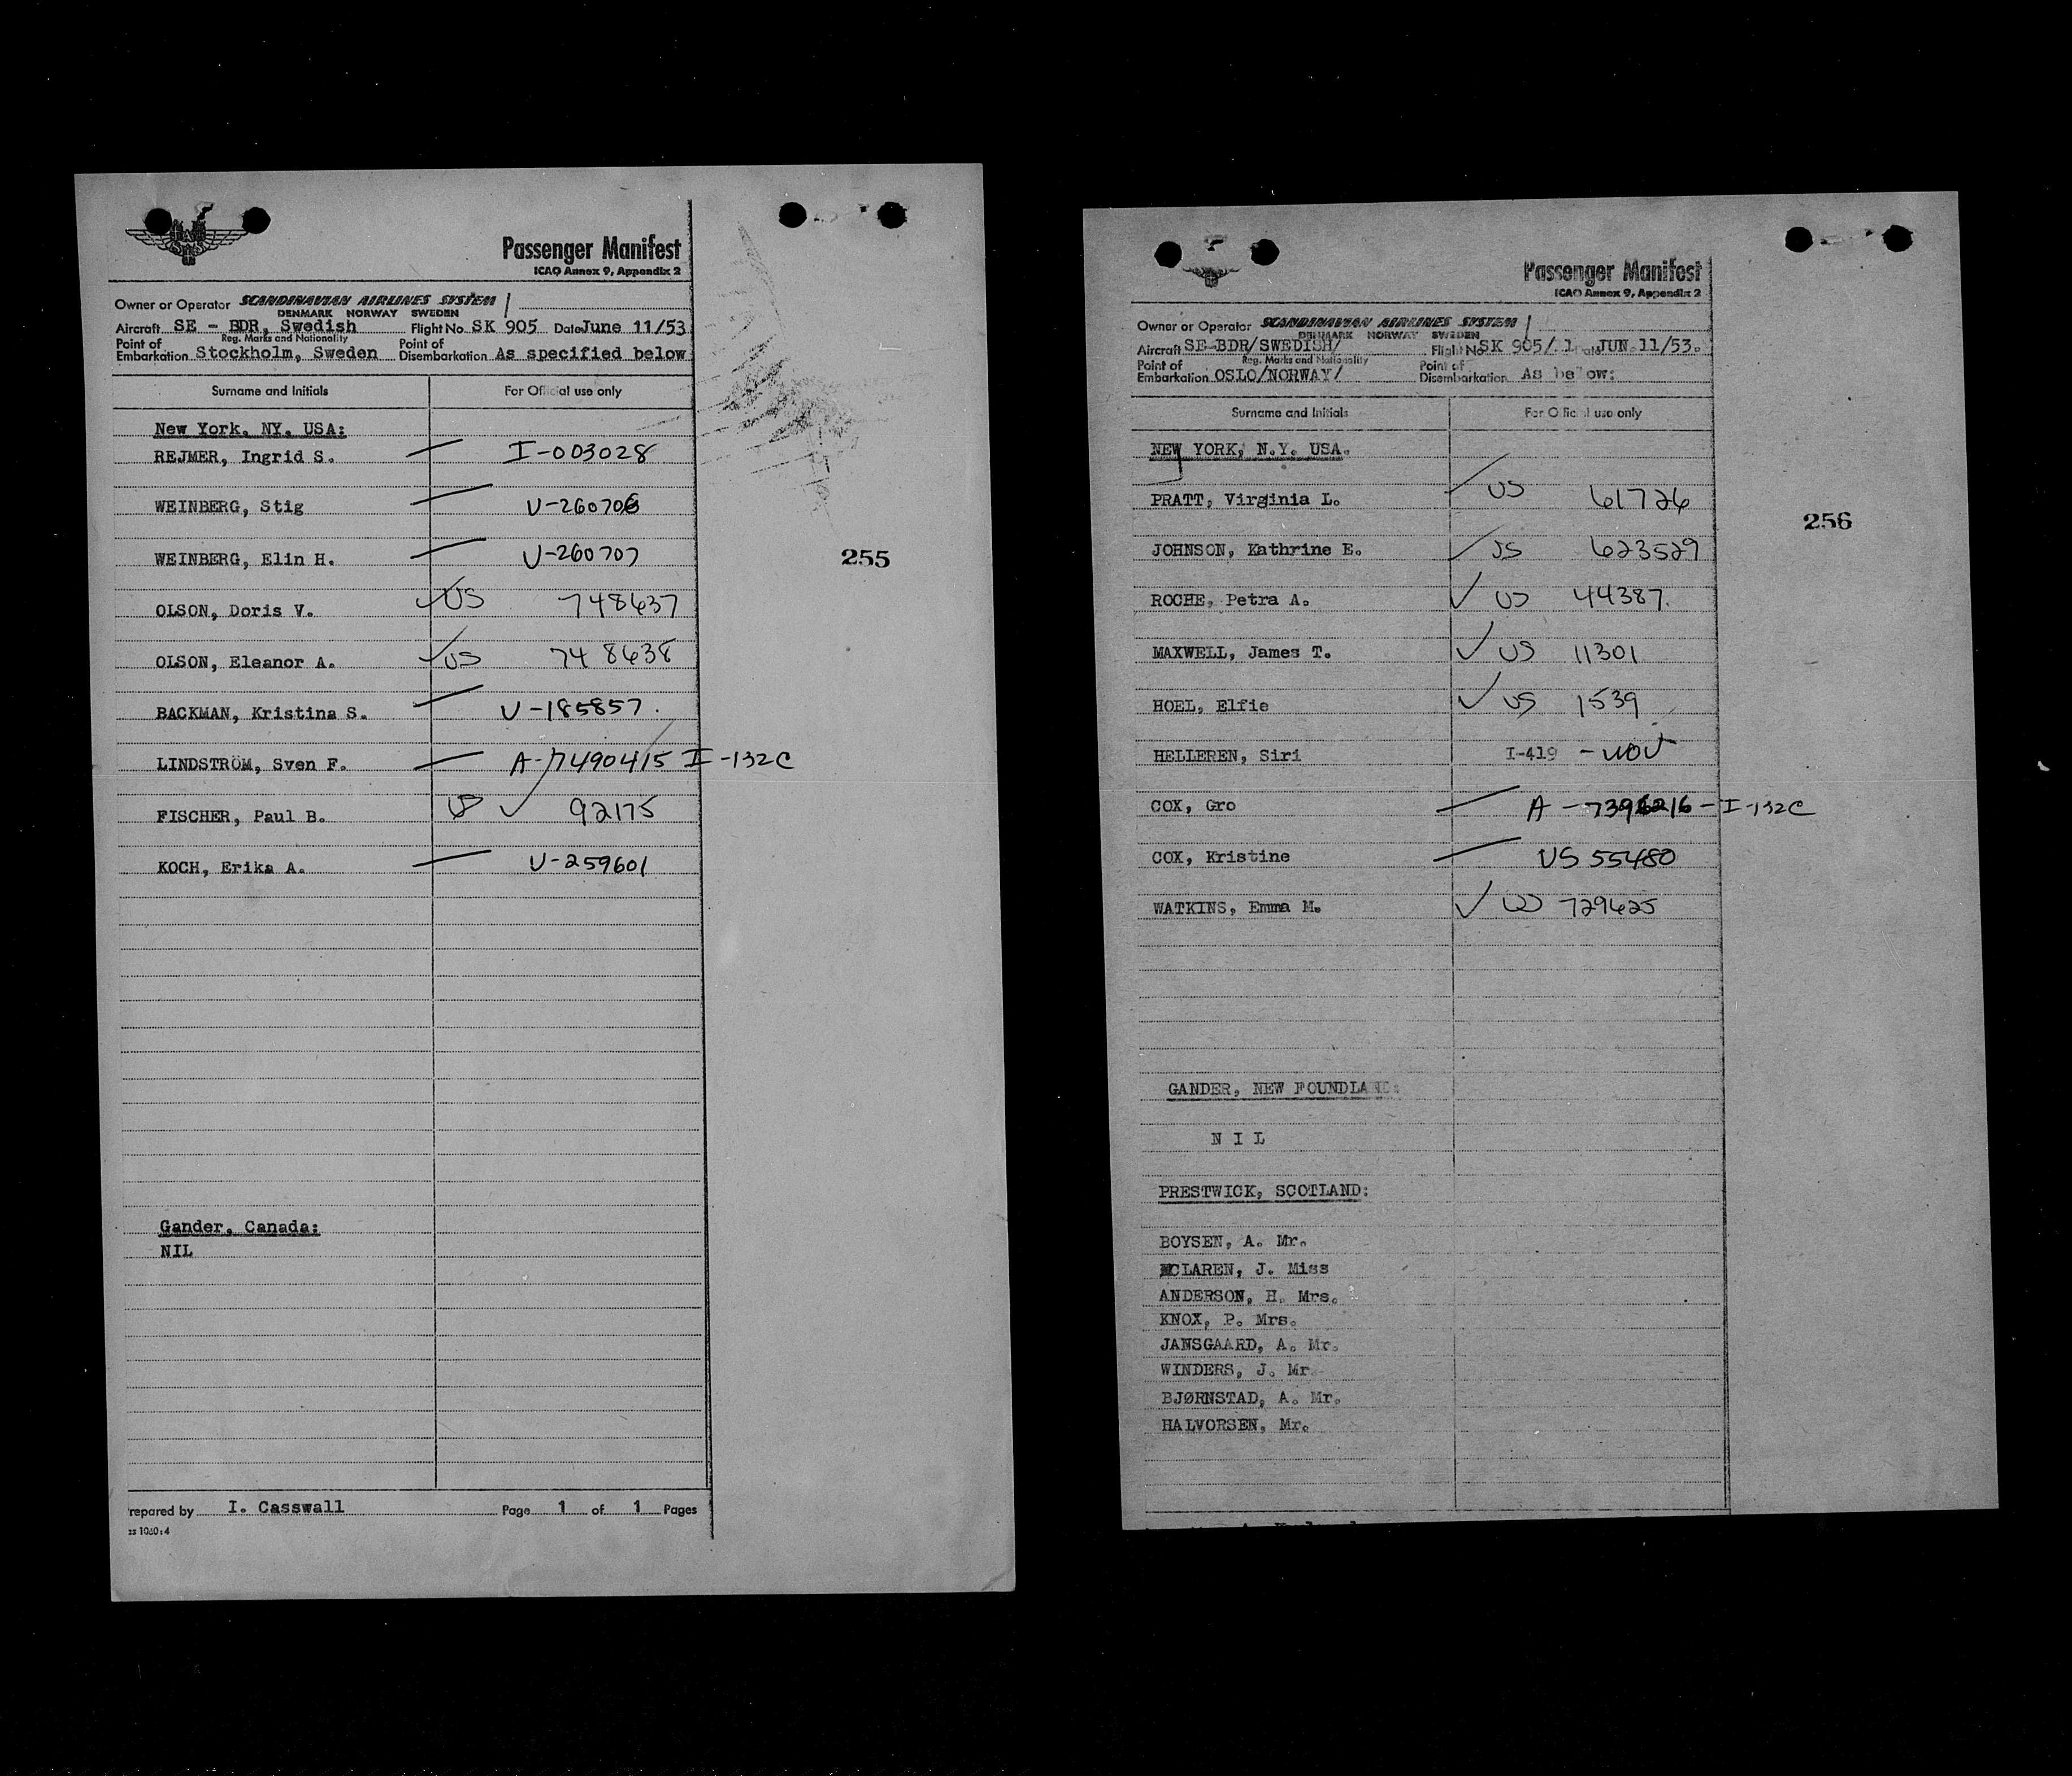 Passenger Manifest
ICAO Annex 9, Appendix 2
Owner or Operator SCANDINAVIAN AIRLINES SYSTEM
DENMARK NORWAY SWEDEN
Aircraft SE - BDR, Swedish Flight No. SK 905 Date June 11/53
Reg. Marks and Nationality
Point of Embarkation Stockholm, Sweden Point of Disembarkation As specified below
Surname and Initials For Official use only
New York, NY. USA:
REJMER, Ingrid S. I-003028
WEINBERG, Stig U-260706
WEINBERG, Elin H. U-260707
255
OLSON, Doris V. US 748637
OLSON, Eleanor A. US 748638
BACKMAN, Kristina S. U-185857.
LINDSTRÖM, Sven F. A-7490415 I-132C
FISCHER, Paul B. US 92175
KOCH, Erika A. U-259601
Gander, Canada:
NIL
repared by I. Casswall Page 1 of 1 Pages
Passenger Manifest
ICAO Annex 9, Appendix 2
Owner or Operator SCANDINAVIAN AIRLINES SYSTEM
DENMARK NORWAY SWEDEN
Aircraft SE-BDR/SWEDISH/ Flight No SK 905/ 1 ate JUN. 11/53.
Reg. Marks and Nationality
Point of Embarkation OSLO/NORWAY/ Point of Disembarkation As below:
Surname and Initials For Official use only
NEW YORK, N.Y. USA.
PRATT, Virginia L. US 61726
256
JOHNSON, Kathrine E. US 623529
ROCHE, Petra A. US 44387.
MAXWELL, James T. US 11301
HOEL, Elfie US 1539
HELLEREN, Siri I-419
COX, Gro A-7396216-I-132C
COX, Kristine US 55480
WATKINS, Emma M. US 729625
GANDER, NEW FOUNDLAND:
N I L
PRESTWICK, SCOTLAND:
BOYSEN, A. Mr.
MCLAREN, J. Miss
ANDERSON, H. Mrs.
KNOX, P. Mrs.
JANSGAARD, A. Mr.
WINDERS, J. Mr
BJØRNSTAD, A. Mr.
HALVORSEN, Mr.